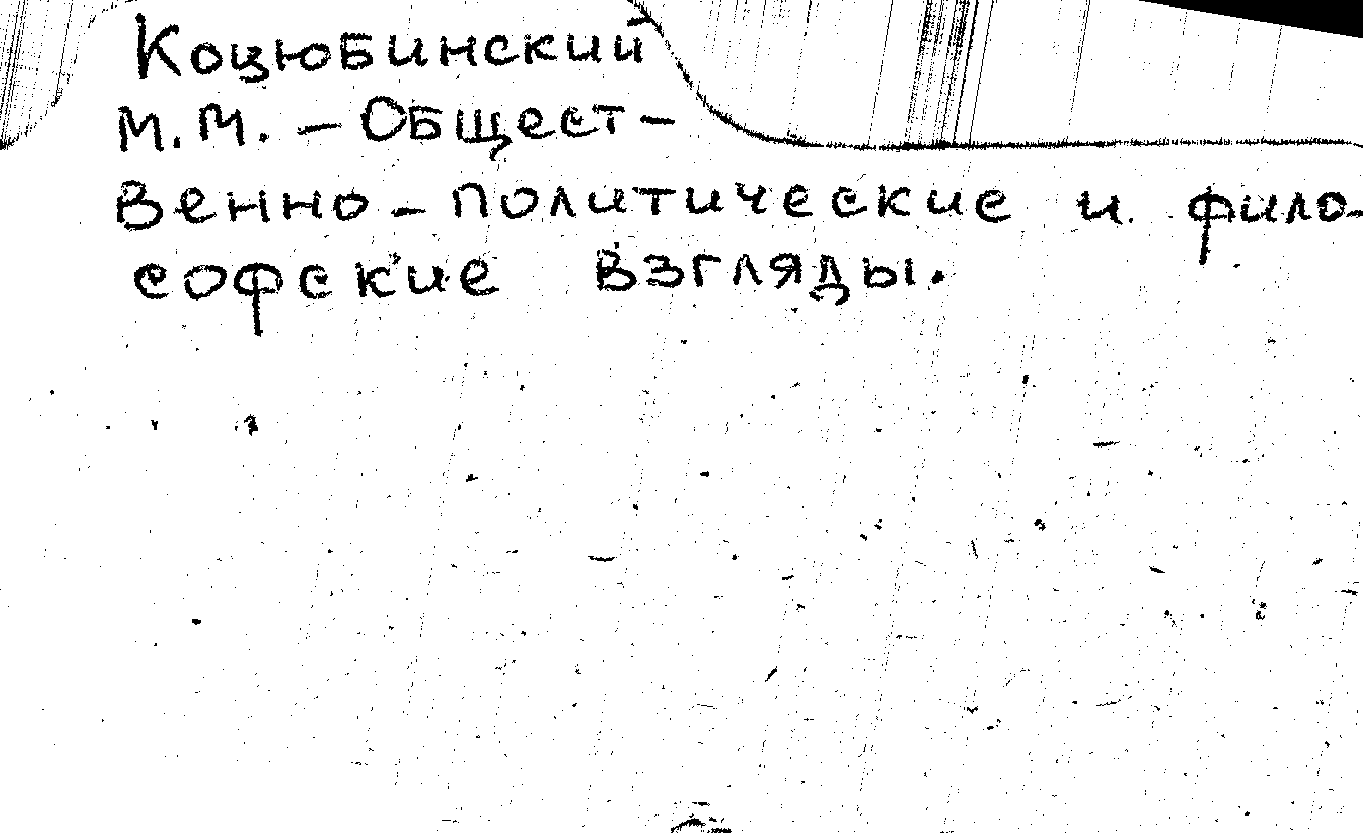 Коцюбинский
М.М. – Общест-
венно-политические и фило-
софские взгляды.